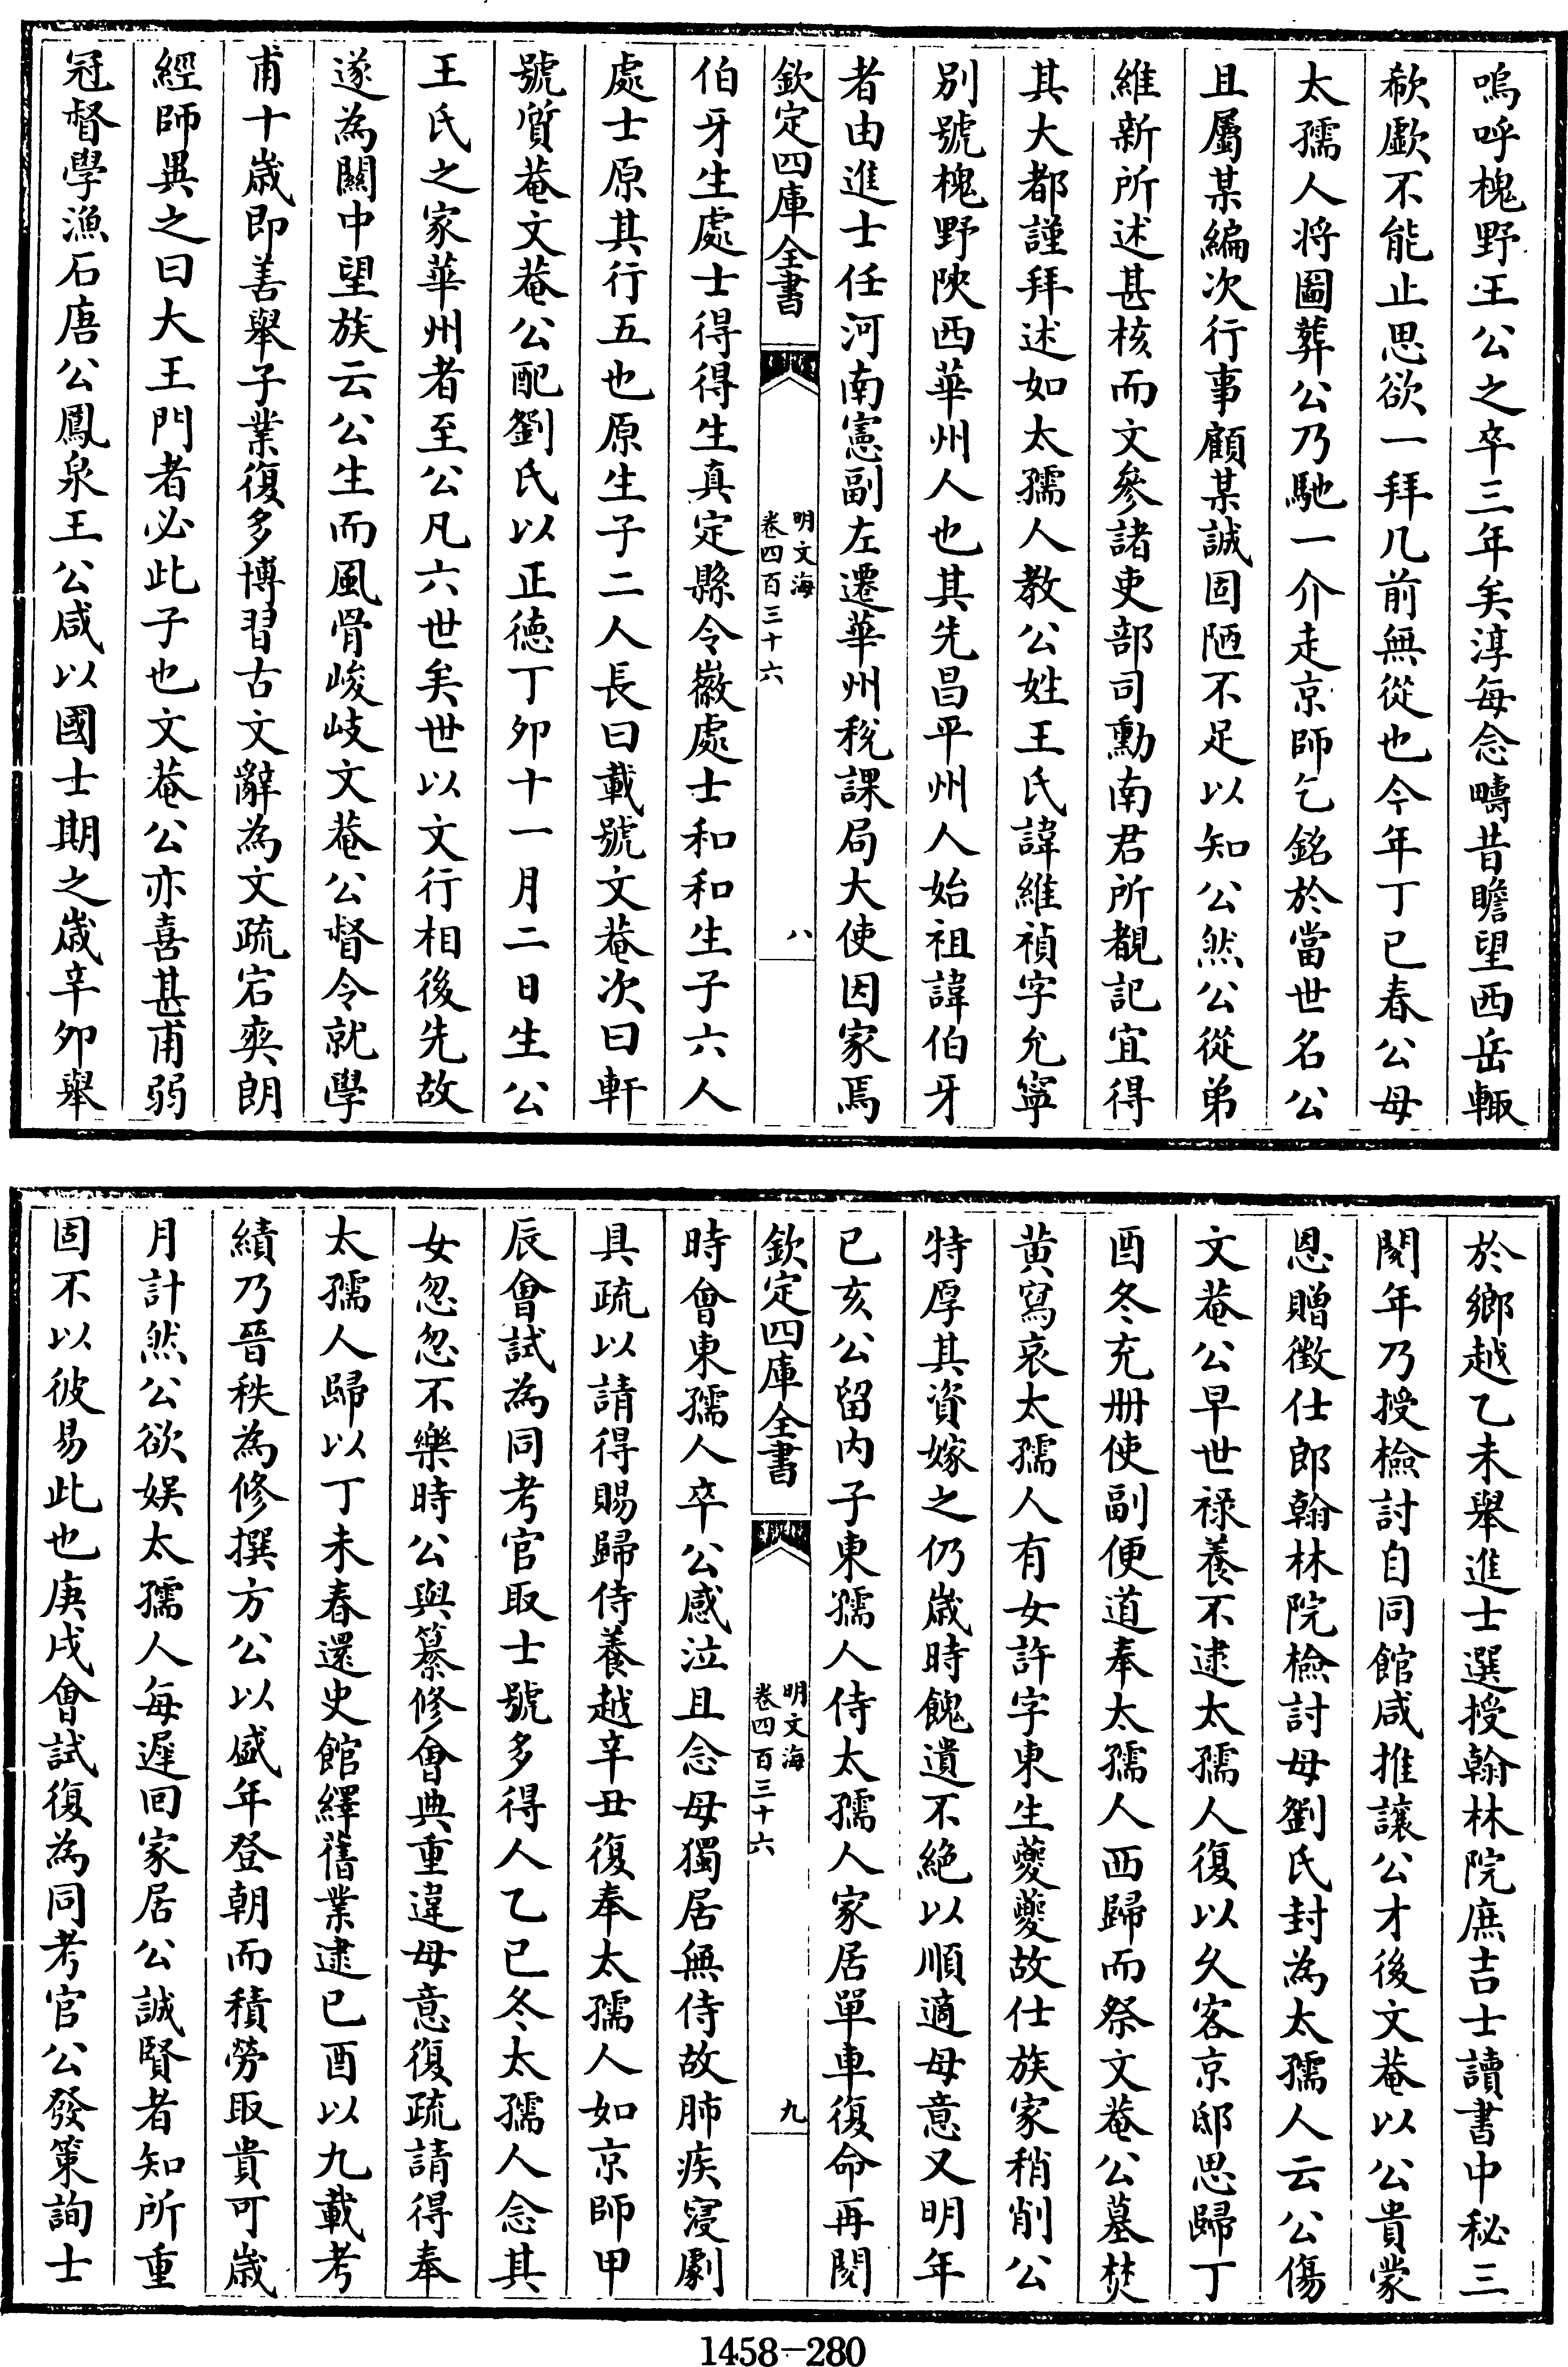 嗚呼槐野王公之卒三年矣淳每念疇昔瞻望西岳輙
欷歔不能止思欲一拜几前無從也今年丁巳春公母
太孺人将圖葬公乃馳一介走京師乞銘於當世名公
且屬某編次行事顧某誠固陋不足以知公然公從弟
維新所述甚核而文參諸吏部司勳南君所覩記宜得
其大都謹拜述如太孺人教公姓王氏諱維禎字允寧
別號槐野陜西華州人也其先昌平州人始祖諱伯牙
者由進士任河南憲副左遷華州稅課局大使因家焉
欽定四庫全書
明文海
卷四百三十六
八
伯牙生處士得得生真定縣令徽處士和和生子六人
處士原其行五也原生子二人長曰載號文菴次曰軒
號質菴文菴公配劉氏以正德丁卯十一月二日生公
王氏之家華州者至公凡六世矣世以文行相後先故
遂為關中望族云公生而風骨峻岐文菴公督令就學
甫十歲即善舉子業復多博習古文辭為文疏宕爽朗
經師異之曰大王門者必此子也文菴公亦喜甚甫弱
冠督學漁石唐公鳳泉王公咸以國士期之歲辛卯舉
於鄉越乙未舉進士選授翰林院庶吉士讀書中秘三
閱年乃授檢討自同館咸推讓公才後文菴以公貴蒙
恩贈徵仕郎翰林院檢討母劉氏封為太孺人云公傷
文菴公早世祿養不逮太孺人復以久客京邸思歸丁
酉冬充册使副便道奉太孺人西歸而祭文菴公墓焚
黄寫哀太孺人有女許字東生夔夔故仕族家稍削公
特厚其資嫁之仍歲時餽遺不絶以順適母意又明年
已亥公留内子東孺人侍太孺人家居單車復命再閱
欽定四庫全書
明文海
卷四百三十六
九
時會東孺人卒公感泣且念母獨居無侍故肺疾寖劇
具疏以請得賜歸侍養越辛丑復奉太孺人如京師甲
辰會試為同考官取士號多得人乙已冬太孺人念其
女忽忽不樂時公與纂修會典重違母意復疏請得奉
太孺人歸以丁未春還史館繹舊業逮已酉以九載考
績乃晉秩為修撰方公以盛年登朝而積勞取貴可歲
月計然公欲娱太孺人每遲回家居公誠賢者知所重
固不以彼易此也庚戌會試復為同考官公發策詢士
1458-280